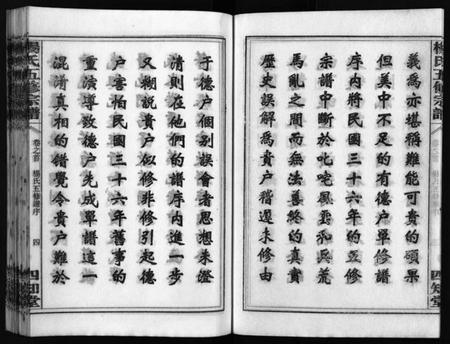 楊氏五修宗譜
四知堂
義為亦堪稱難能可貴的碩果
但美中不足的有德户單修譜
序內將民國三十六年的五修
宗譜中斷於叱咤風雲和兵荒
馬亂之間而無法善終的真實
歷史誤解為貴户稽遲未修由
于德户個別誤會者思想未澄
清則在他們的譜序內進一步
又糊說貴户似修非修引起德
户害怕民國三十六年舊事的
重演導致德户先成單譜這一
混淆真相的錯覺令貴户難於
楊氏五修宗譜
卷之首
楊氏五修譜序
四
四知堂